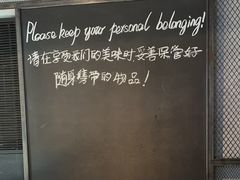 Please keep your personal belonging!
请在享受我们的美味时妥善保管好
随身携带的物品!